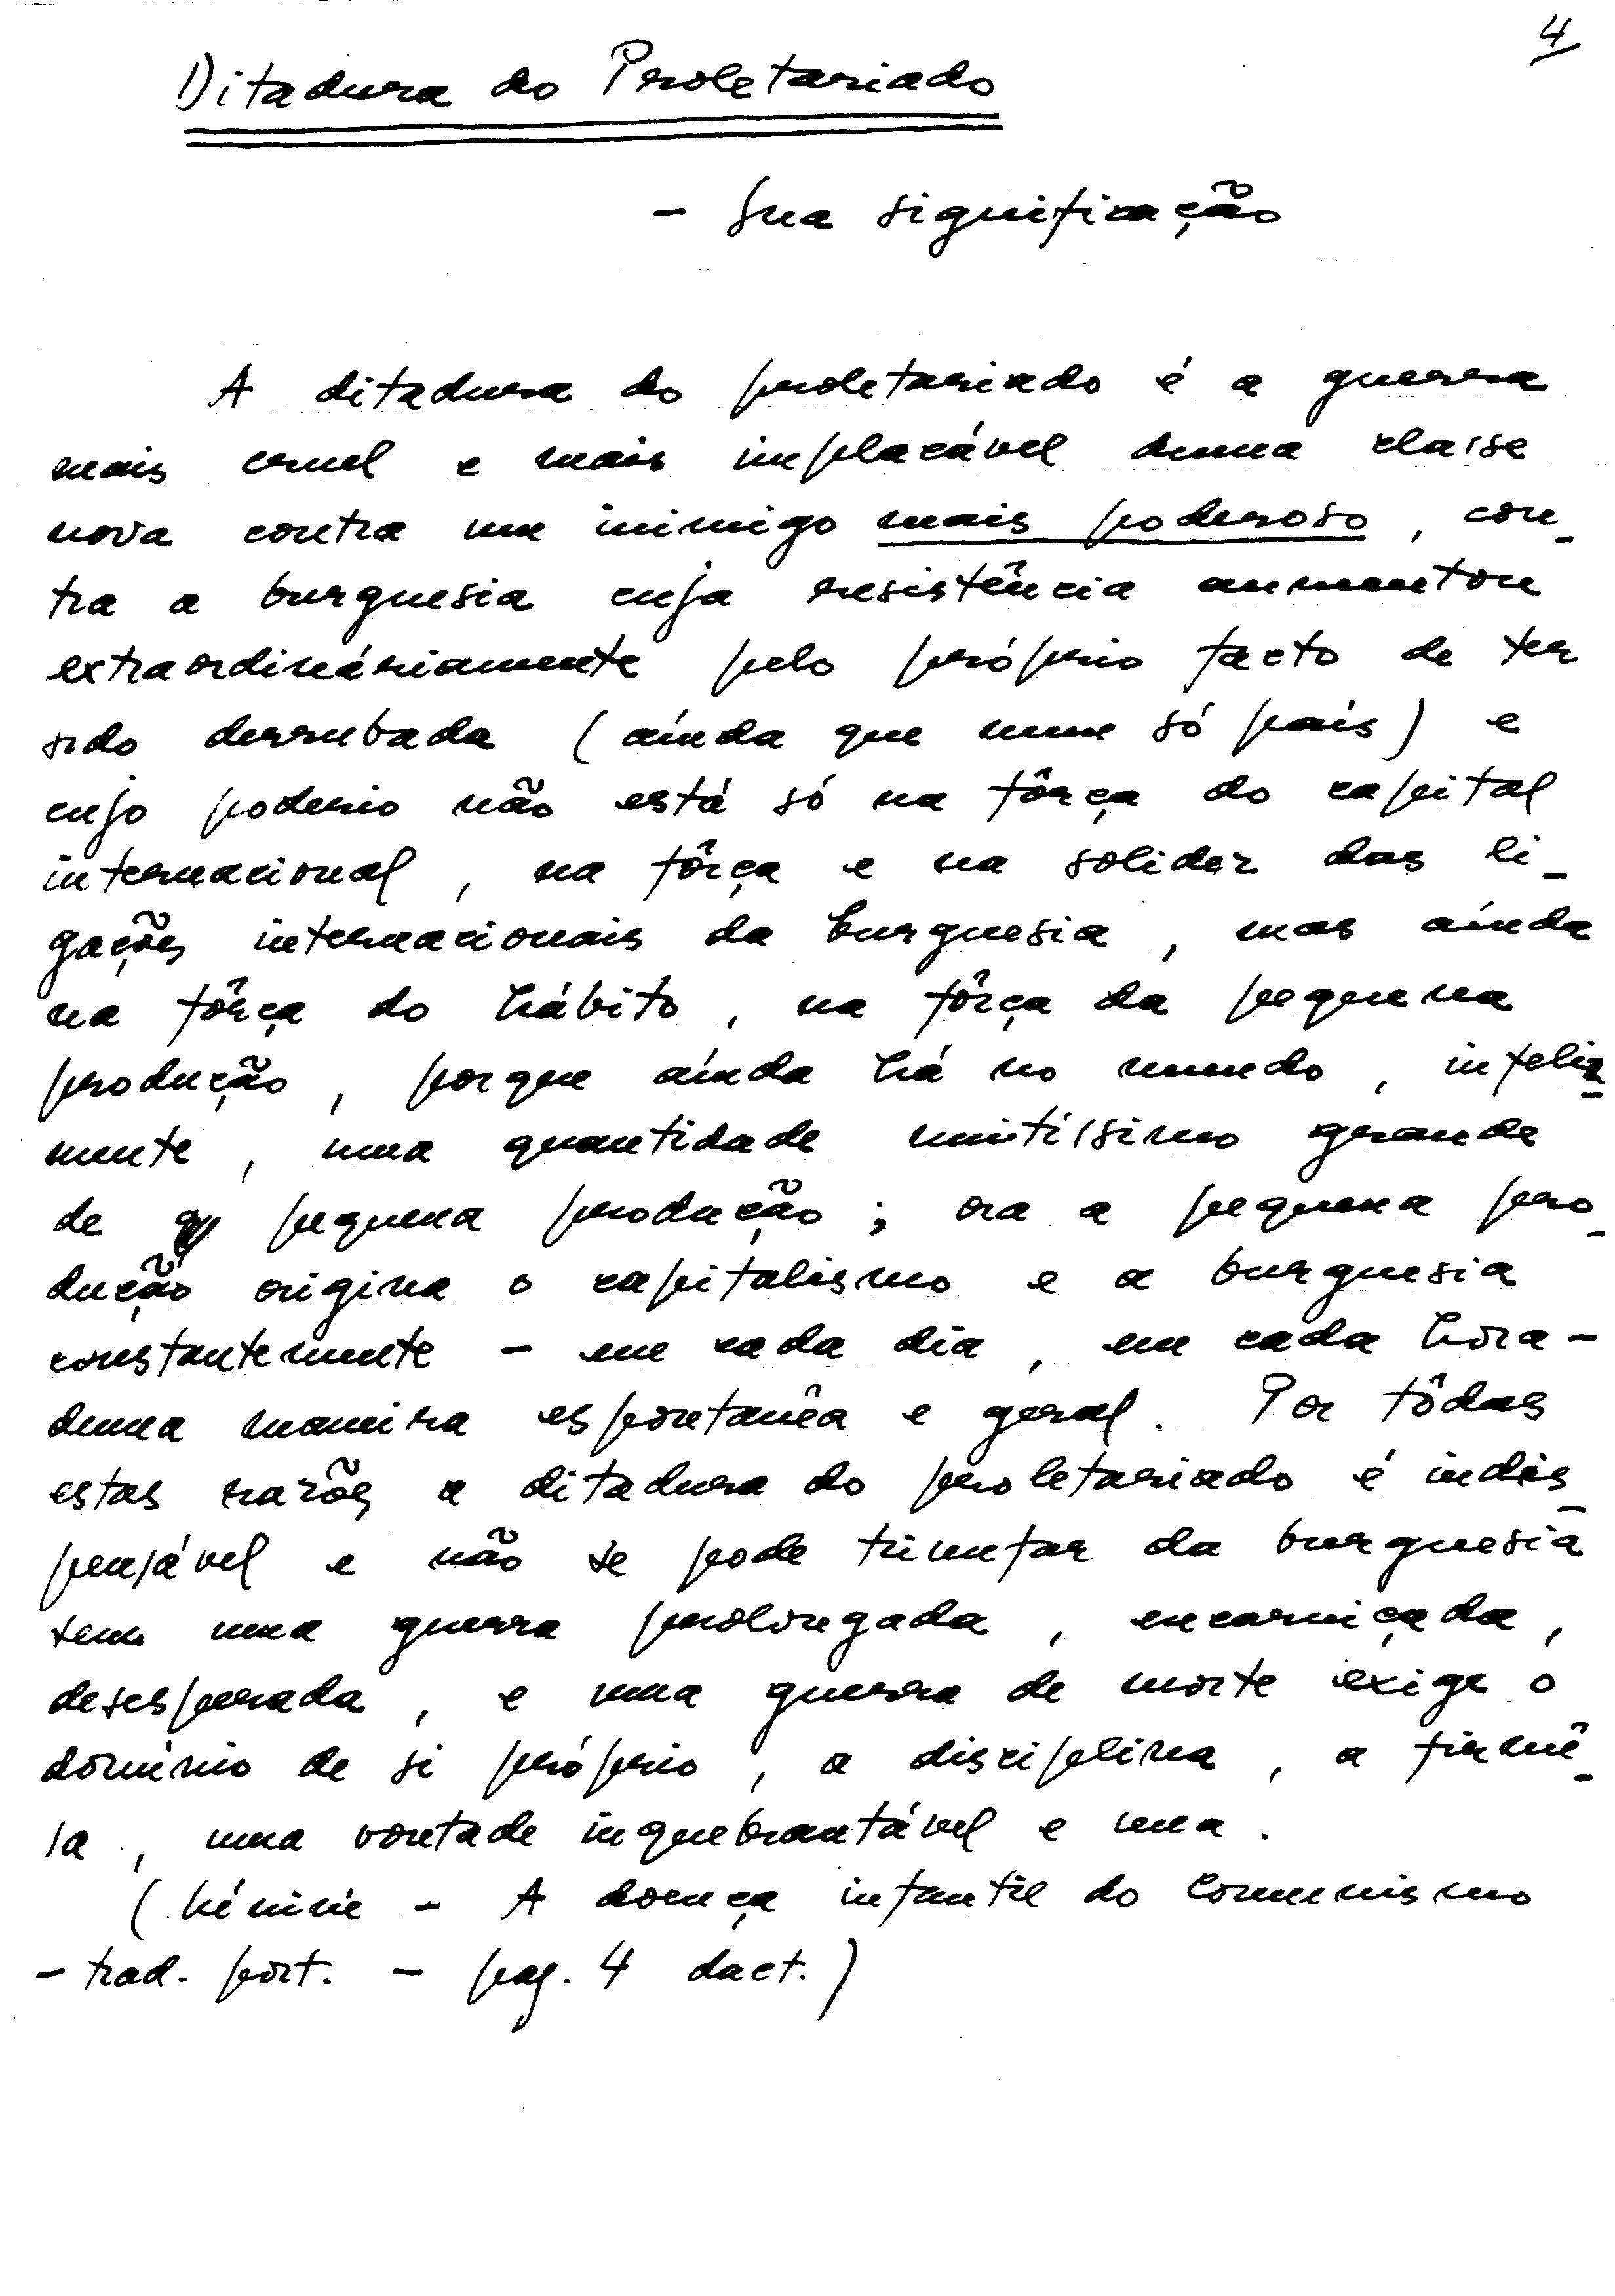 4
Ditadura do Proletariado
- Sua significação
A ditadura do proletariado é a guerra
mais cruel e mais implacável duma classe
nova contra um inimigo mais poderoso, con-
tra a burguesia cuja resistência aumentou
extraordináriamente pelo próprio facto de ter
sido derrubada (aínda que num só país) e
cujo poderio não está só na fôrça do capital
internacional, na fôrça e na solidez das li-
gações internacionais da burguesia, mas aínda
na fôrça do hábito, na fôrça da pequena
produção, porque aínda há no mundo, infeliz-
mente, uma quantidade muitíssimo grande
de pequena produção; ora a pequena pro-
dução origina o capitalismo e a burguesia
constantemente - em cada dia, em cada hora -
duma maneira espontanêa e geral. Por tôdas
estas razões a ditadura do proletariado é indis-
pensável e não se pode triunfar da burguesia
sem uma guerra prolongada, encarniçada,
desesperada, e uma guerra de morte exige o
domínio de si próprio, a disciplina, a firmê-
sa, uma vontade inquebrantável e una.
(Lénine - A doença infantil do Comunismo
- trad. port. - pag. 4 dact.)